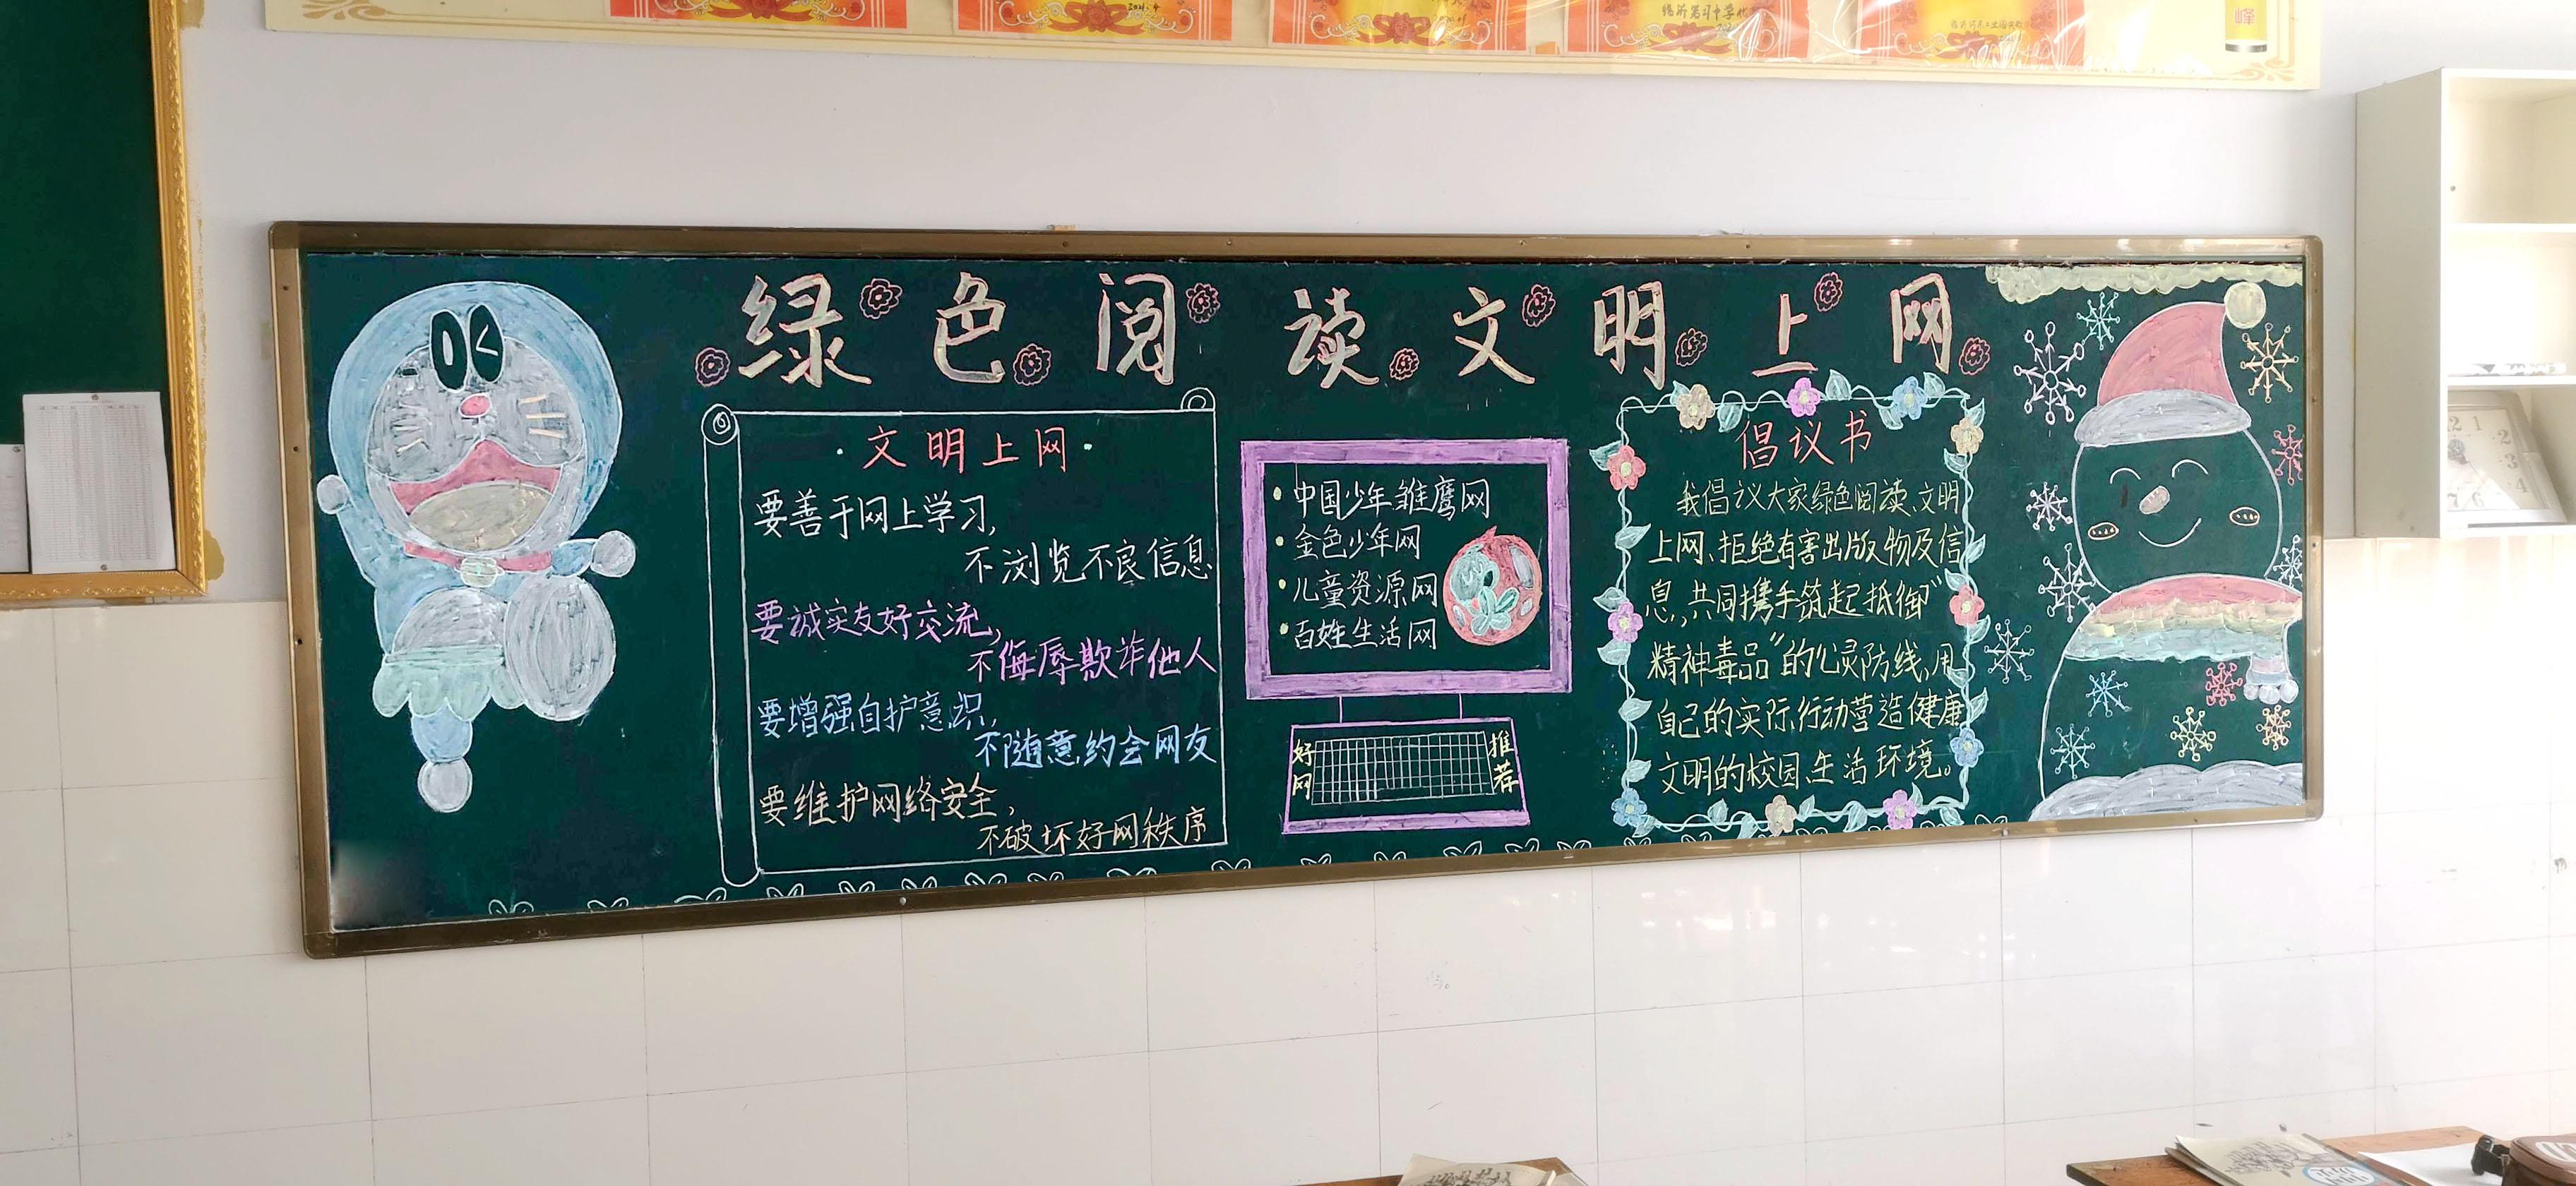 2021.4
峰
绿色阅读文明上网
·文明上网·
要善于网上学习,
不浏览不良信息
要诚实友好交流,
不侮辱欺诈他人
要增强自护意识,
不随意约会网友
要维护网络安全,
不破坏好网秩序
·中国少年雏鹰网
·金色少年网
·儿童资源网
·百姓生活网
好网
推荐
倡议书
我倡议大家绿色阅读、文明
上网、拒绝有害出版物及信
息,共同携手筑起抵御“
精神毒品”的心灵防线,用
自己的实际行动营造健康
文明的校园生活环境。